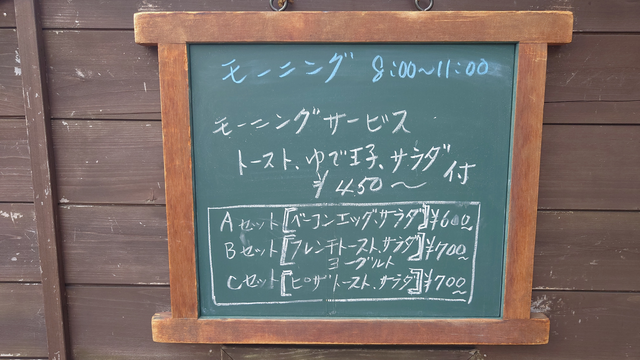 モーニング 8:00〜11:00
モーニングサービス
トースト、ゆで玉子、サラダ付
¥450〜
Aセット[ベーコンエッグ、サラダ]¥600
Bセット[フレンチトースト、サラダ ヨーグルト]¥700
Cセット[ピザトースト、サラダ]¥700